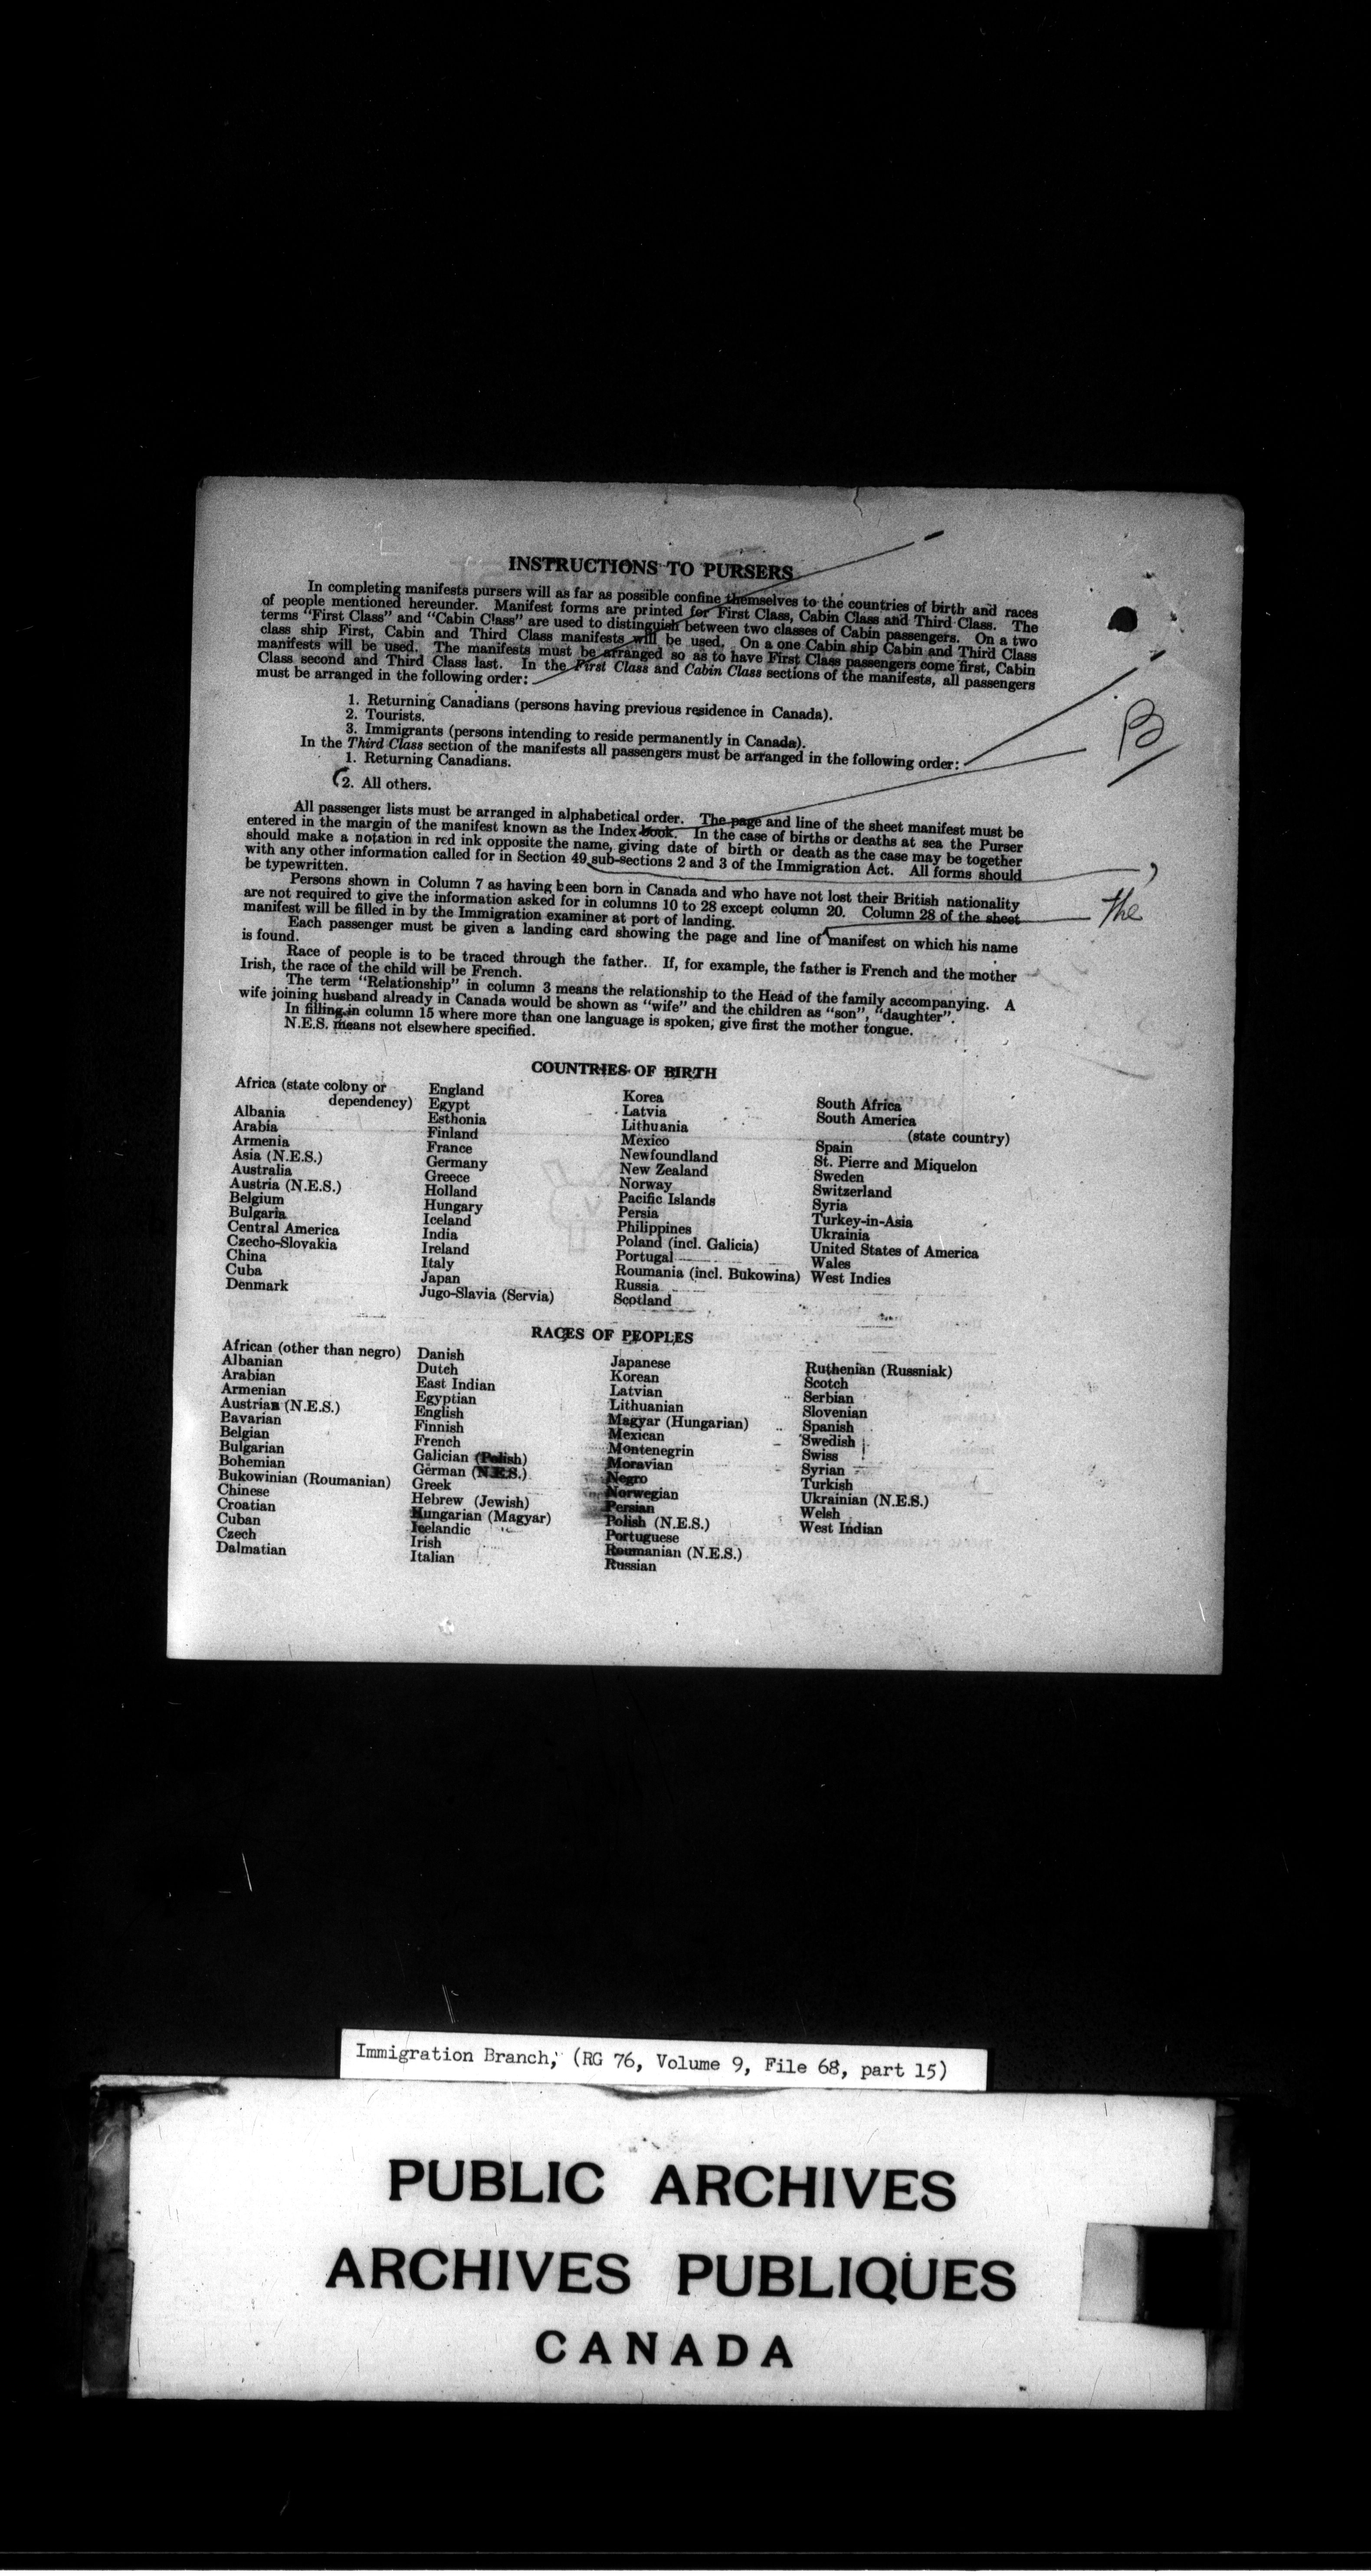 INSTRUCTIONS TO PURSERS
In completing manifests pursers will as far as possible confine themselves to the countries of birth and races
of people mentioned hereunder. Manifest forms are printed for First Class, Cabin Class and Third Class. The
terms "First Class" and "Cabin Class" are used to distinguish between two classes of Cabin passengers. On a two
class ship First, Cabin and Third Class manifests will be used. On a one Cabin ship Cabin and Third Class
manifests will be used. The manifests must be arranged so as to have First Class passengers come first, Cabin
Class second and Third Class last. In the First Class and Cabin Class sections of the manifests, all passengers
must be arranged in the following order:
1. Returning Canadians (persons having previous residence in Canada).
2. Tourists.
3. Immigrants (persons intending to reside permanently in Canada).
In the Third Class section of the manifests all passengers must be arranged in the following order:
1. Returning Canadians.
2. All others.
B
All passenger lists must be arranged in alphabetical order. The page and line of the sheet manifest must be
entered in the margin of the manifest known as the Index book. In the case of births or deaths at sea the Purser
should make a notation in red ink opposite the name, giving date of birth or death as the case may be together
with any other information called for in Section 49 sub-sections 2 and 3 of the Immigration Act. All forms should
be typewritten.
,
Persons shown in Column 7 as having been born in Canada and who have not lost their British nationality
are not required to give the information asked for in columns 10 to 28 except column 20. Column 28 of the sheet
manifest will be filled in by the Immigration examiner at port of landing.
the
Each passenger must be given a landing card showing the page and line of manifest on which his name
is found.
Race of people is to be traced through the father. If, for example, the father is French and the mother
Irish, the race of the child will be French.
The term "Relationship" in column 3 means the relationship to the Head of the family accompanying. A
wife joining husband already in Canada would be shown as "wife" and the children as "son", "daughter".
In filling in column 15 where more than one language is spoken, give first the mother tongue.
N.E.S. means not elsewhere specified.
COUNTRIES OF BIRTH
Africa (state colony or
dependency)
Albania
Arabia
Armenia
Asia (N.E.S.)
Australia
Austria (N.E.S.)
Belgium
Bulgaria
Central America
Czecho-Slovakia
China
Cuba
Denmark
England
Egypt
Esthonia
Finland
France
Germany
Greece
Holland
Hungary
Iceland
India
Ireland
Italy
Japan
Jugo-Slavia (Servia)
Korea
Latvia
Lithuania
Mexico
Newfoundland
New Zealand
Norway
Pacific Islands
Persia
Philippines
Poland (incl. Galicia)
Portugal
Roumania (incl. Bukowina)
Russia
Scotland
South Africa
South America
(state country)
Spain
St. Pierre and Miquelon
Sweden
Switzerland
Syria
Turkey-in-Asia
Ukrainia
United States of America
Wales
West Indies
RACES OF PEOPLES
African (other than negro)
Albanian
Arabian
Armenian
Austrian (N.E.S.)
Bavarian
Belgian
Bulgarian
Bohemian
Bukowinian (Roumanian)
Chinese
Croatian
Cuban
Czech
Dalmatian
Danish
Dutch
East Indian
Egyptian
English
Finnish
French
Galician (Polish)
German (N.E.S.)
Greek
Hebrew (Jewish)
Hungarian (Magyar)
Icelandic
Irish
Italian
Japanese
Korean
Latvian
Lithuanian
Magyar (Hungarian)
Mexican
Montenegrin
Moravian
Negro
Norwegian
Persian
Polish (N.E.S.)
Portuguese
Roumanian (N.E.S.)
Russian
Ruthenian (Russniak)
Scotch
Serbian
Slovenian
Spanish
Swedish
Swiss
Syrian
Turkish
Ukrainian (N.E.S.)
Welsh
West Indian
Immigration Branch, (RG 76, Volume 9, File 68, part 15)
PUBLIC ARCHIVES
ARCHIVES PUBLIQUES
CANADA